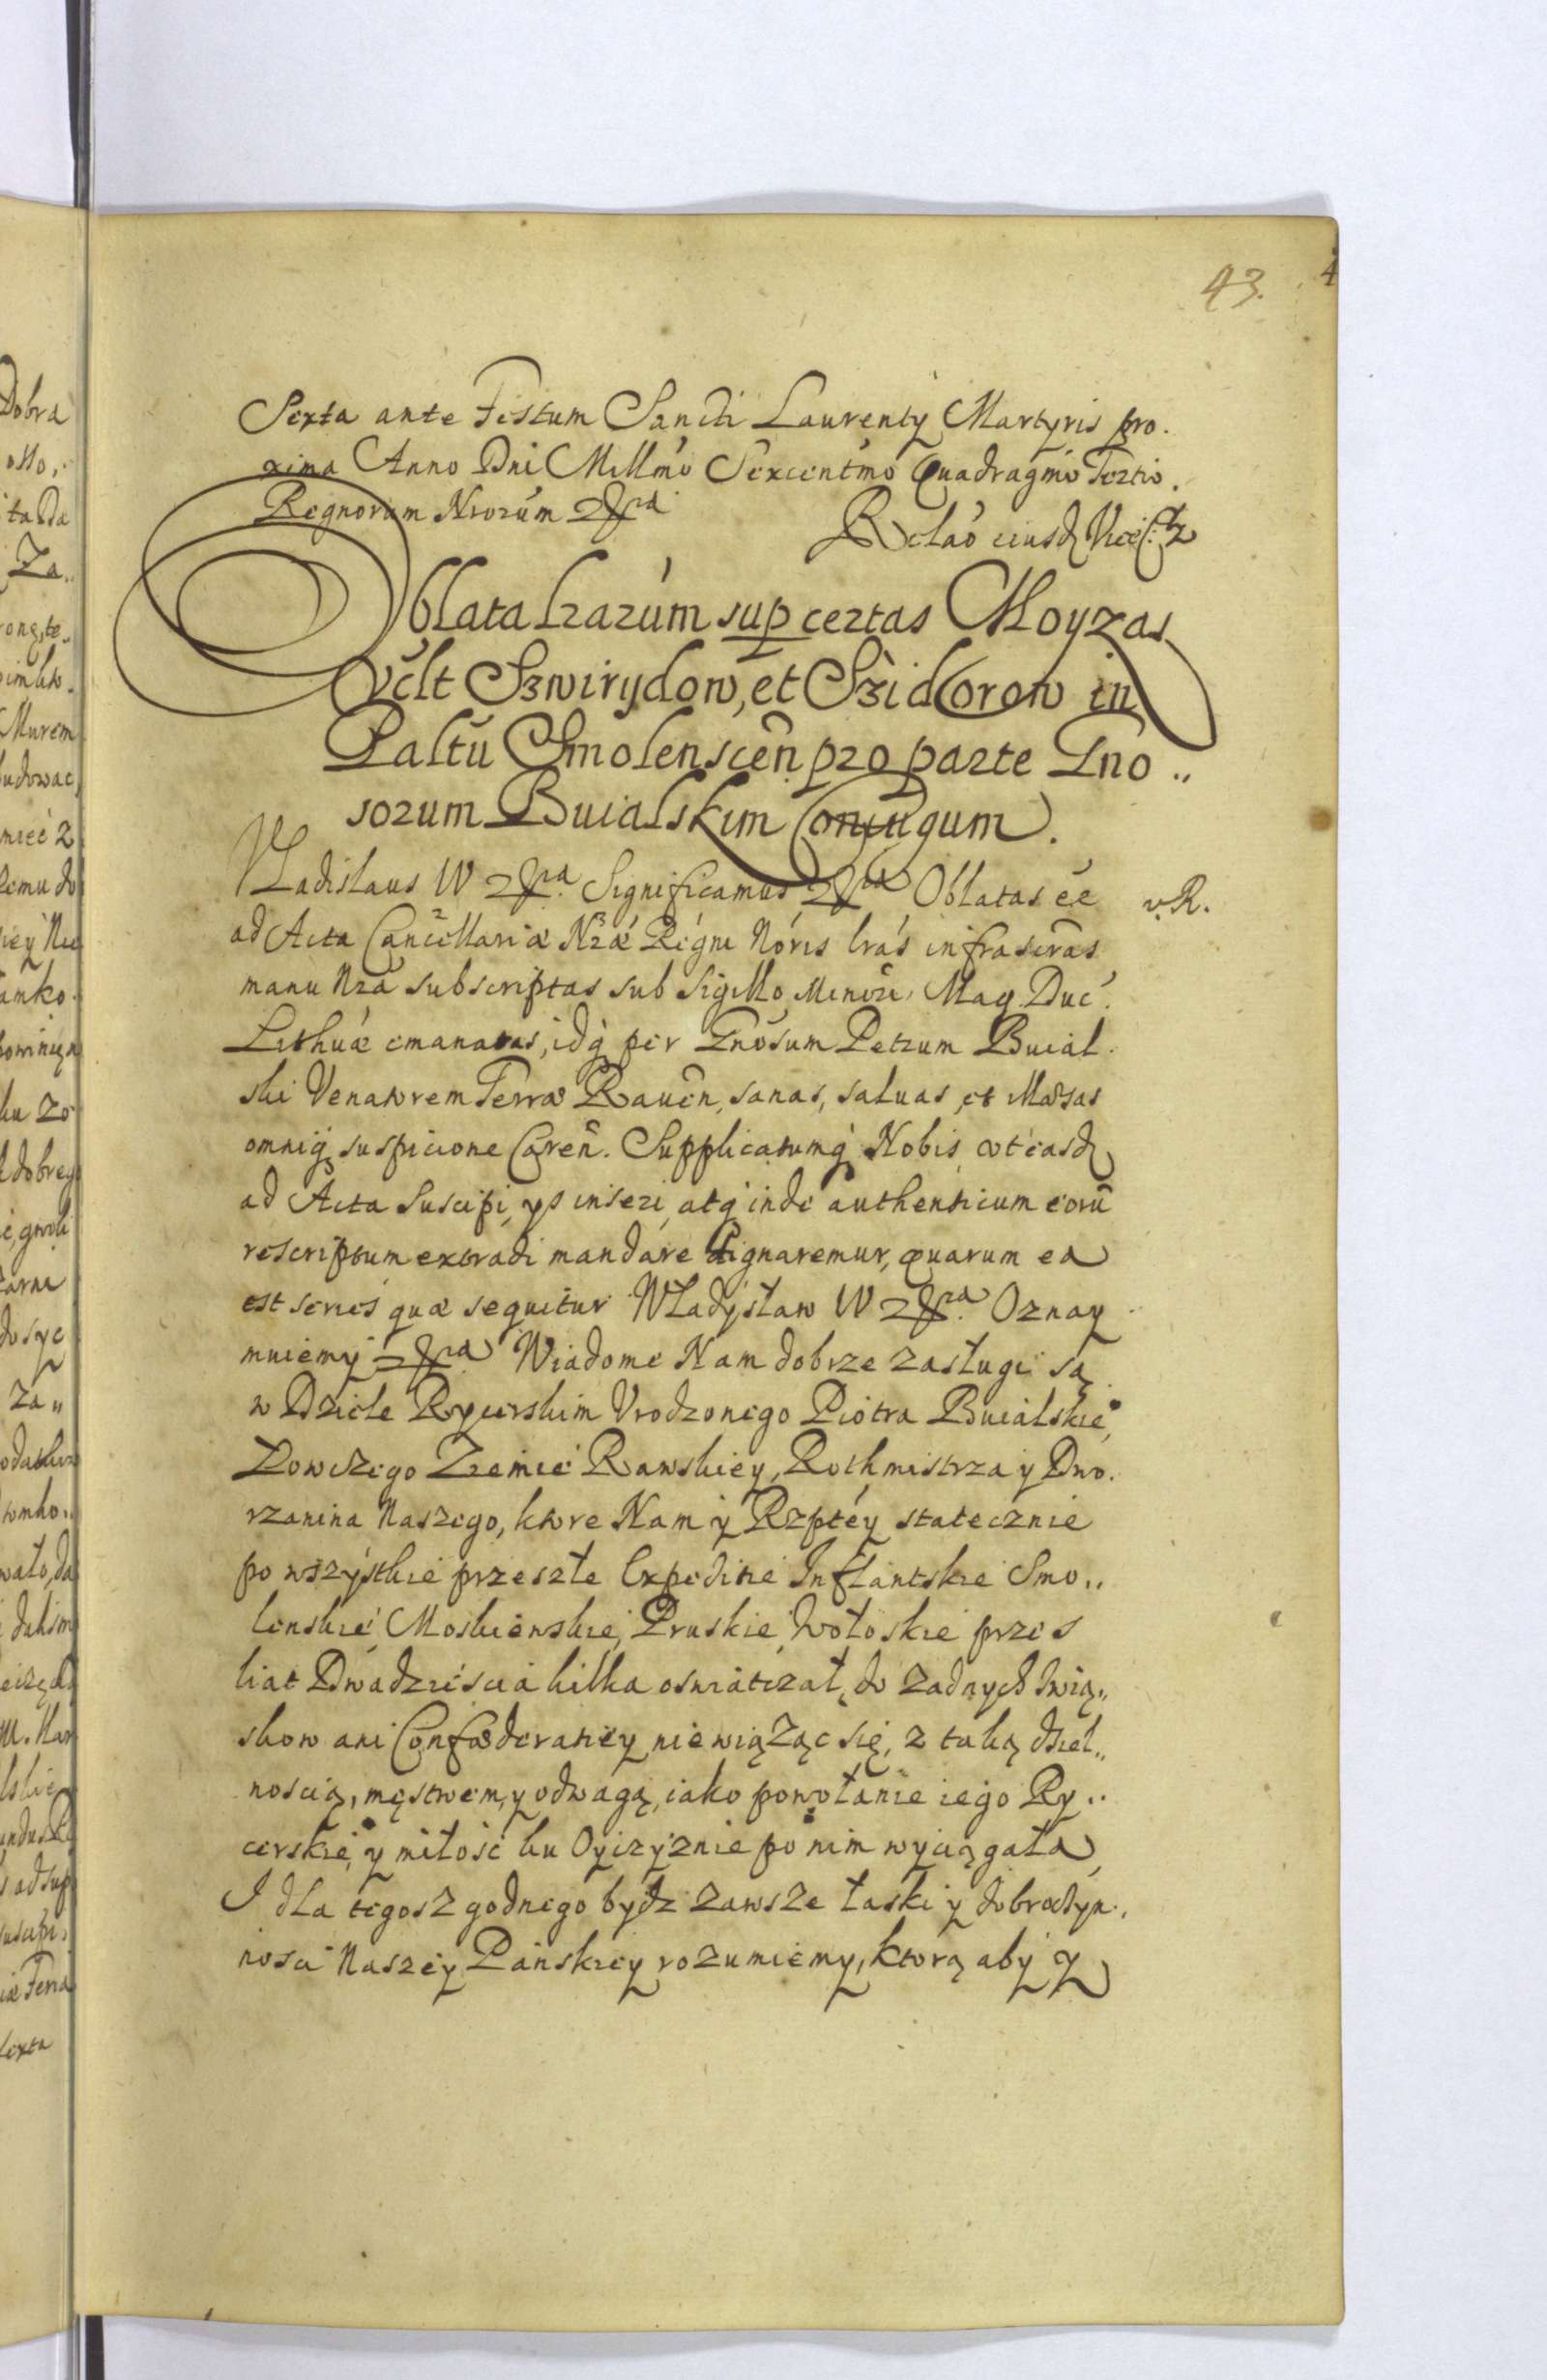 43.
Sexta ante Festum Sancti Laurentÿ Martyris pro.
xima Anno Dni Millmo Sexcentmo Quadragmo Tertio.
Regnorum Nrorum &ra
Relao eiusd Vice
Oblata lrarum sup certas Moyzas
Vclt Szwirydow, et Szidorow in
Paltu Smolenscen pro parte Gno..
sorum Buialskim Coniugum.
Vladislaus IV &ra Significamus &ra Oblatas ee
v.R.
ad Acta Cancellariæ Nræ Regni Noris lras infrascras
manu Nra subscriptas sub Sigillo Minori Mag Duc.
Lithuæ emanatas, idq per Gnosum Petrum Buial.
ski Venatorem Terræ Rauen, sanas, saluas, et illæsas
omniq suspicione Caren. Supplicatumq Nobis vt easd
ad Acta Suscipi, ys inseri, atq inde authenticum eoru
rescriptum extradi mandare dignaremur, quarum ea
est series quæ sequitur Władysław IV &ra. Oznay
muiemy &ra Wiadome Nam dobrze zasługi są
w Dziele Rycerskim Vrodzonego Piotra Buialskie,
Łowczego Ziemie Rawskiey, Rothmistrza y Dwo.
rzanina Naszego, ktore Nam y Rzptey statecznie
po wszystkie przeszłe Expeditie Inflantskie Smo..
lenskie, Moskiewskie, Pruskie, Wołoskie przes
liat Dwadzieścia kilka oswiatczał, do żadnych zwią..
skow ani Confœderatiey niewiążąc się, z taką dziel..
noscią, męstwem, y odwagą, iako powołanie iego Ry..
cerskie, y miłość ku Oyczyznie po nim wyciągała,
I dla tegosz godnego bydz zawsze łaski y dobroczyn.
nosci Naszey Pańskiey rozumiemy, ktorą aby y